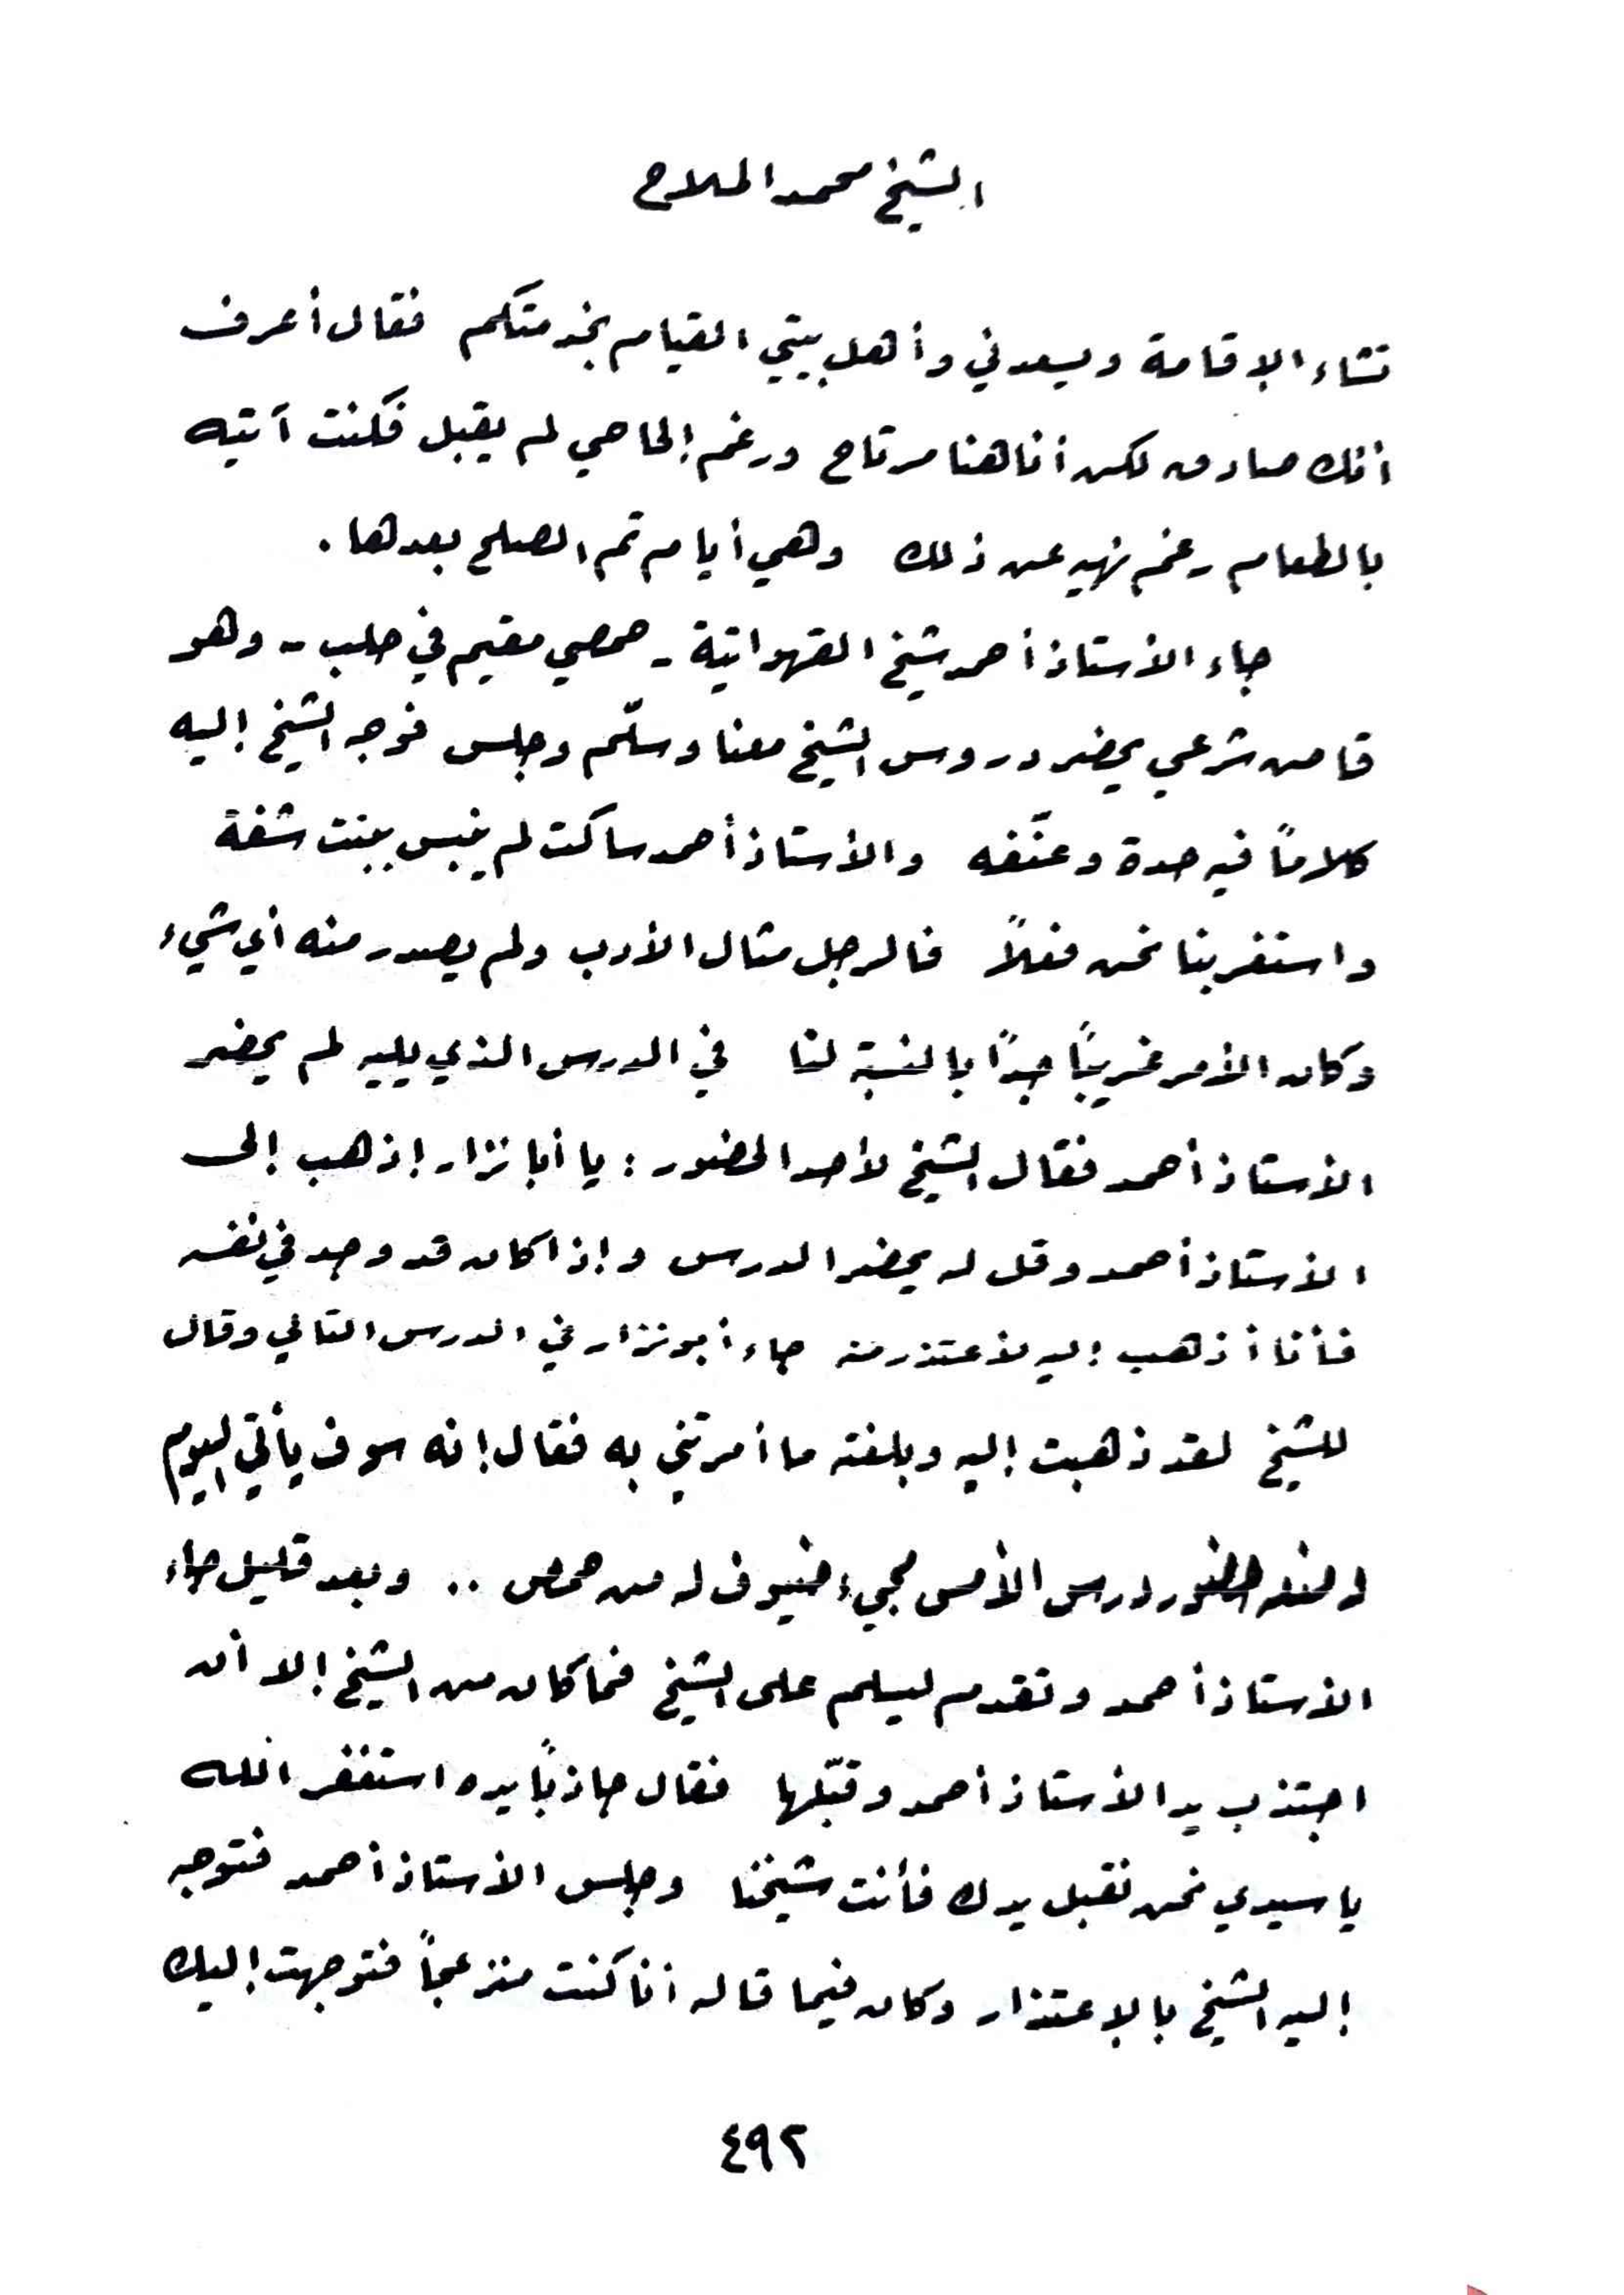 الشيخ محمد الملاح
تشاء الإقامة ويسعدني وأهل بيتي القيام بخدمتكم فقال أعرف
أنك صادق لكن أنا هنا مرتاح ورغم إلحاحي لم يقبل فكنت آتيه
بالطعام رغم نهيه عن ذلك وهي أيام تم الصلح بعدها .
جاء الأستاذ أحمد شيخ القهواتية - حمصي مقيم في حلب - وهو
قاض شرعي يحضر دروس الشيخ معنا وسلّم وجلس فوجه الشيخ إليه
كلاماً فيه حدة وعنّفه والأستاذ أحمد ساكت لم ينبس ببنت شفة
واستغربنا نحن فعلاً فالرجل مثال الأدب ولم يصدر منه أي شيء
وكان الأمر غريباً جداً بالنسبة لنا في الدرس الذي يليه لم يحضر
الأستاذ أحمد فقال الشيخ لأحد الحضور : يا أبا نزار إذهب إلى
الأستاذ أحمد وقل له يحضر الدرس وإذا كان قد وجد في نفسه
فأنا أذهب إليه لأعتذر منه جاء أبو نزار في الدرس التالي وقال
للشيخ لقد ذهبت إليه وبلغته ما أمرتني به فقال إنه سوف يأتي اليوم
درس الأمس مجيء ضيوف له من حمص .. وبعد قليل جاء
الأستاذ أحمد وتقدم ليسلم على الشيخ فما كان من الشيخ إلا أن
اجتذب يد الأستاذ أحمد وقبّلها فقال جاذباً يده استغفر الله
يا سيدي نحن نقبل يدك فأنت شيخنا وجلس الأستاذ أحمد فتوجه
إليه الشيخ بالإعتذار وكان فيما قاله أنا كنت منزعجاً فتوجهت إليك
٤٩٢